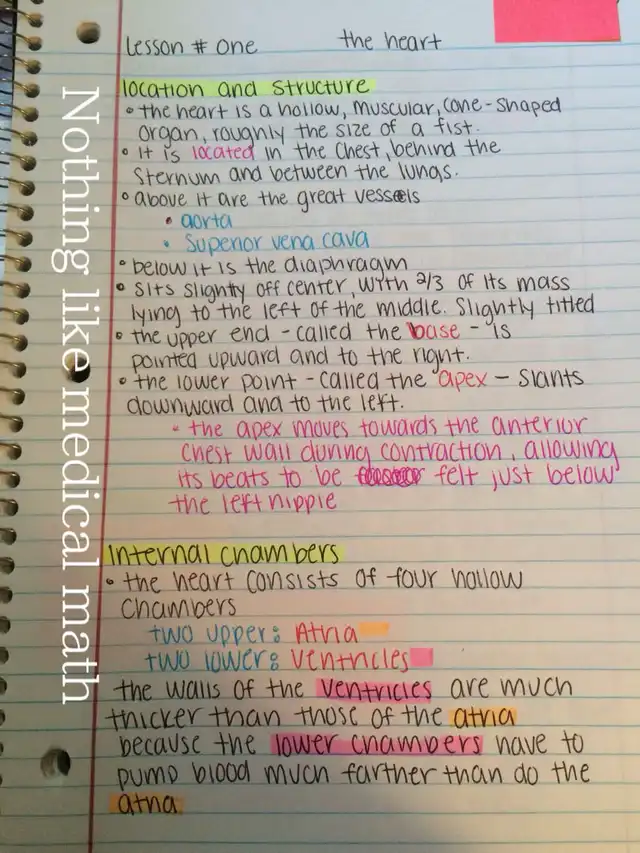 Lesson # one the heart
location and structure
• the heart is a hollow, muscular, cone-shaped
organ, roughly the size of a fist.
• it is located in the chest, behind the
sternum and between the lungs.
• above it are the great vessels
• aorta
• Superior vena cava
• below it is the diaphragm
• sits slightly off center, with 2/3 of its mass
lying to the left of the middle. Slightly titled
• the upper end - called the base - is
pointed upward and to the right.
• the lower point - called the apex - slants
downward and to the left.
• the apex moves towards the anterior
chest wall during contraction, allowing
its beats to be felt just below
the left nipple
Internal chambers
• the heart consists of four hollow
chambers
two upper: Atria
two lower: Ventricles
the walls of the ventricles are much
thicker than those of the atria
because the lower chambers have to
pump blood much farther than do the
atria.
Nothing like medical math